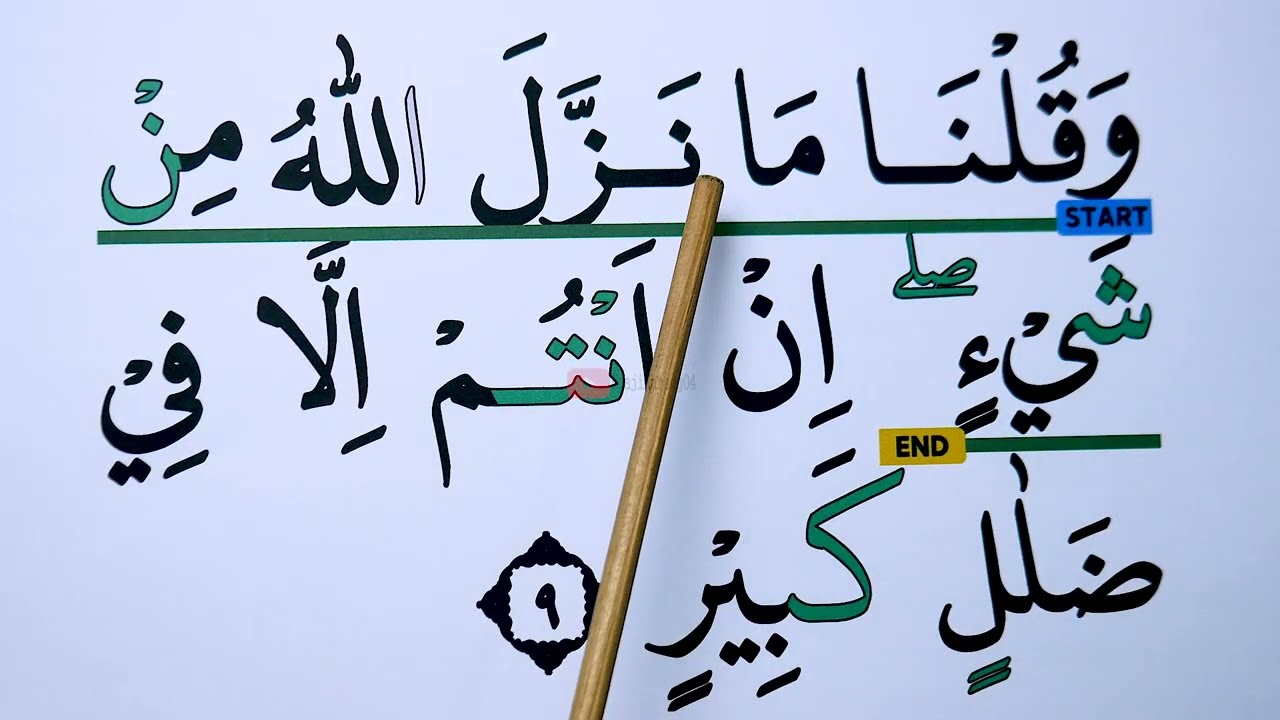 وَقُلْنَا مَا نَزَّلَ اللّٰهُ مِنْ
START
شَيْءٍ ۖ اِنْ اَنْتُمْ اِلَّا فِيْ
END
ضَلٰلٍ كَبِيْرٍ ٩